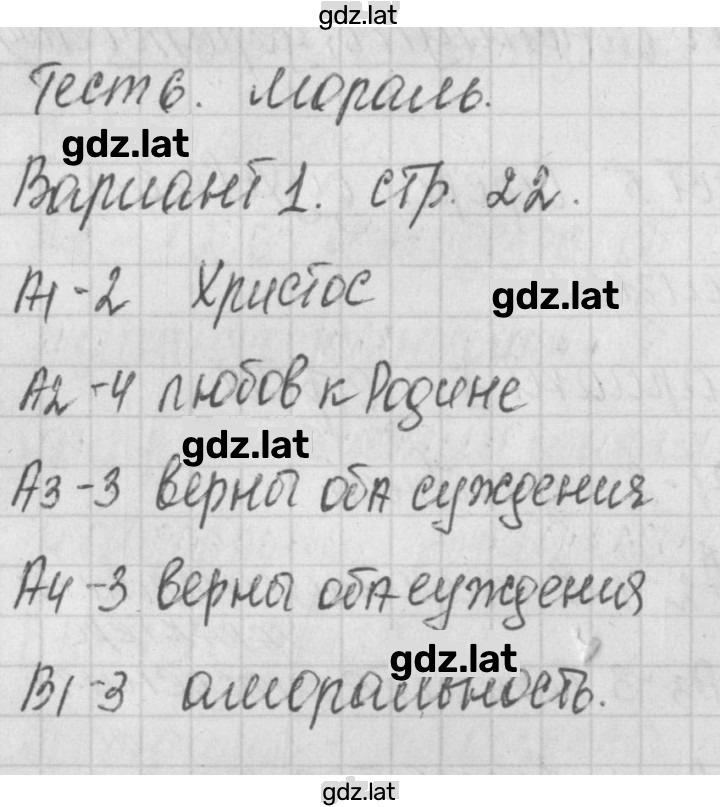 gdz.lat
Тест 6. Мораль.
gdz.lat
Вариант 1. стр. 22.
А1-2 Христос
gdz.lat
А2-4 любов к Родине
gdz.lat
А3-3 верны оба суждения
А4-3 верны оба суждения
gdz.lat
В1-3 аморальность.
gdz.lat